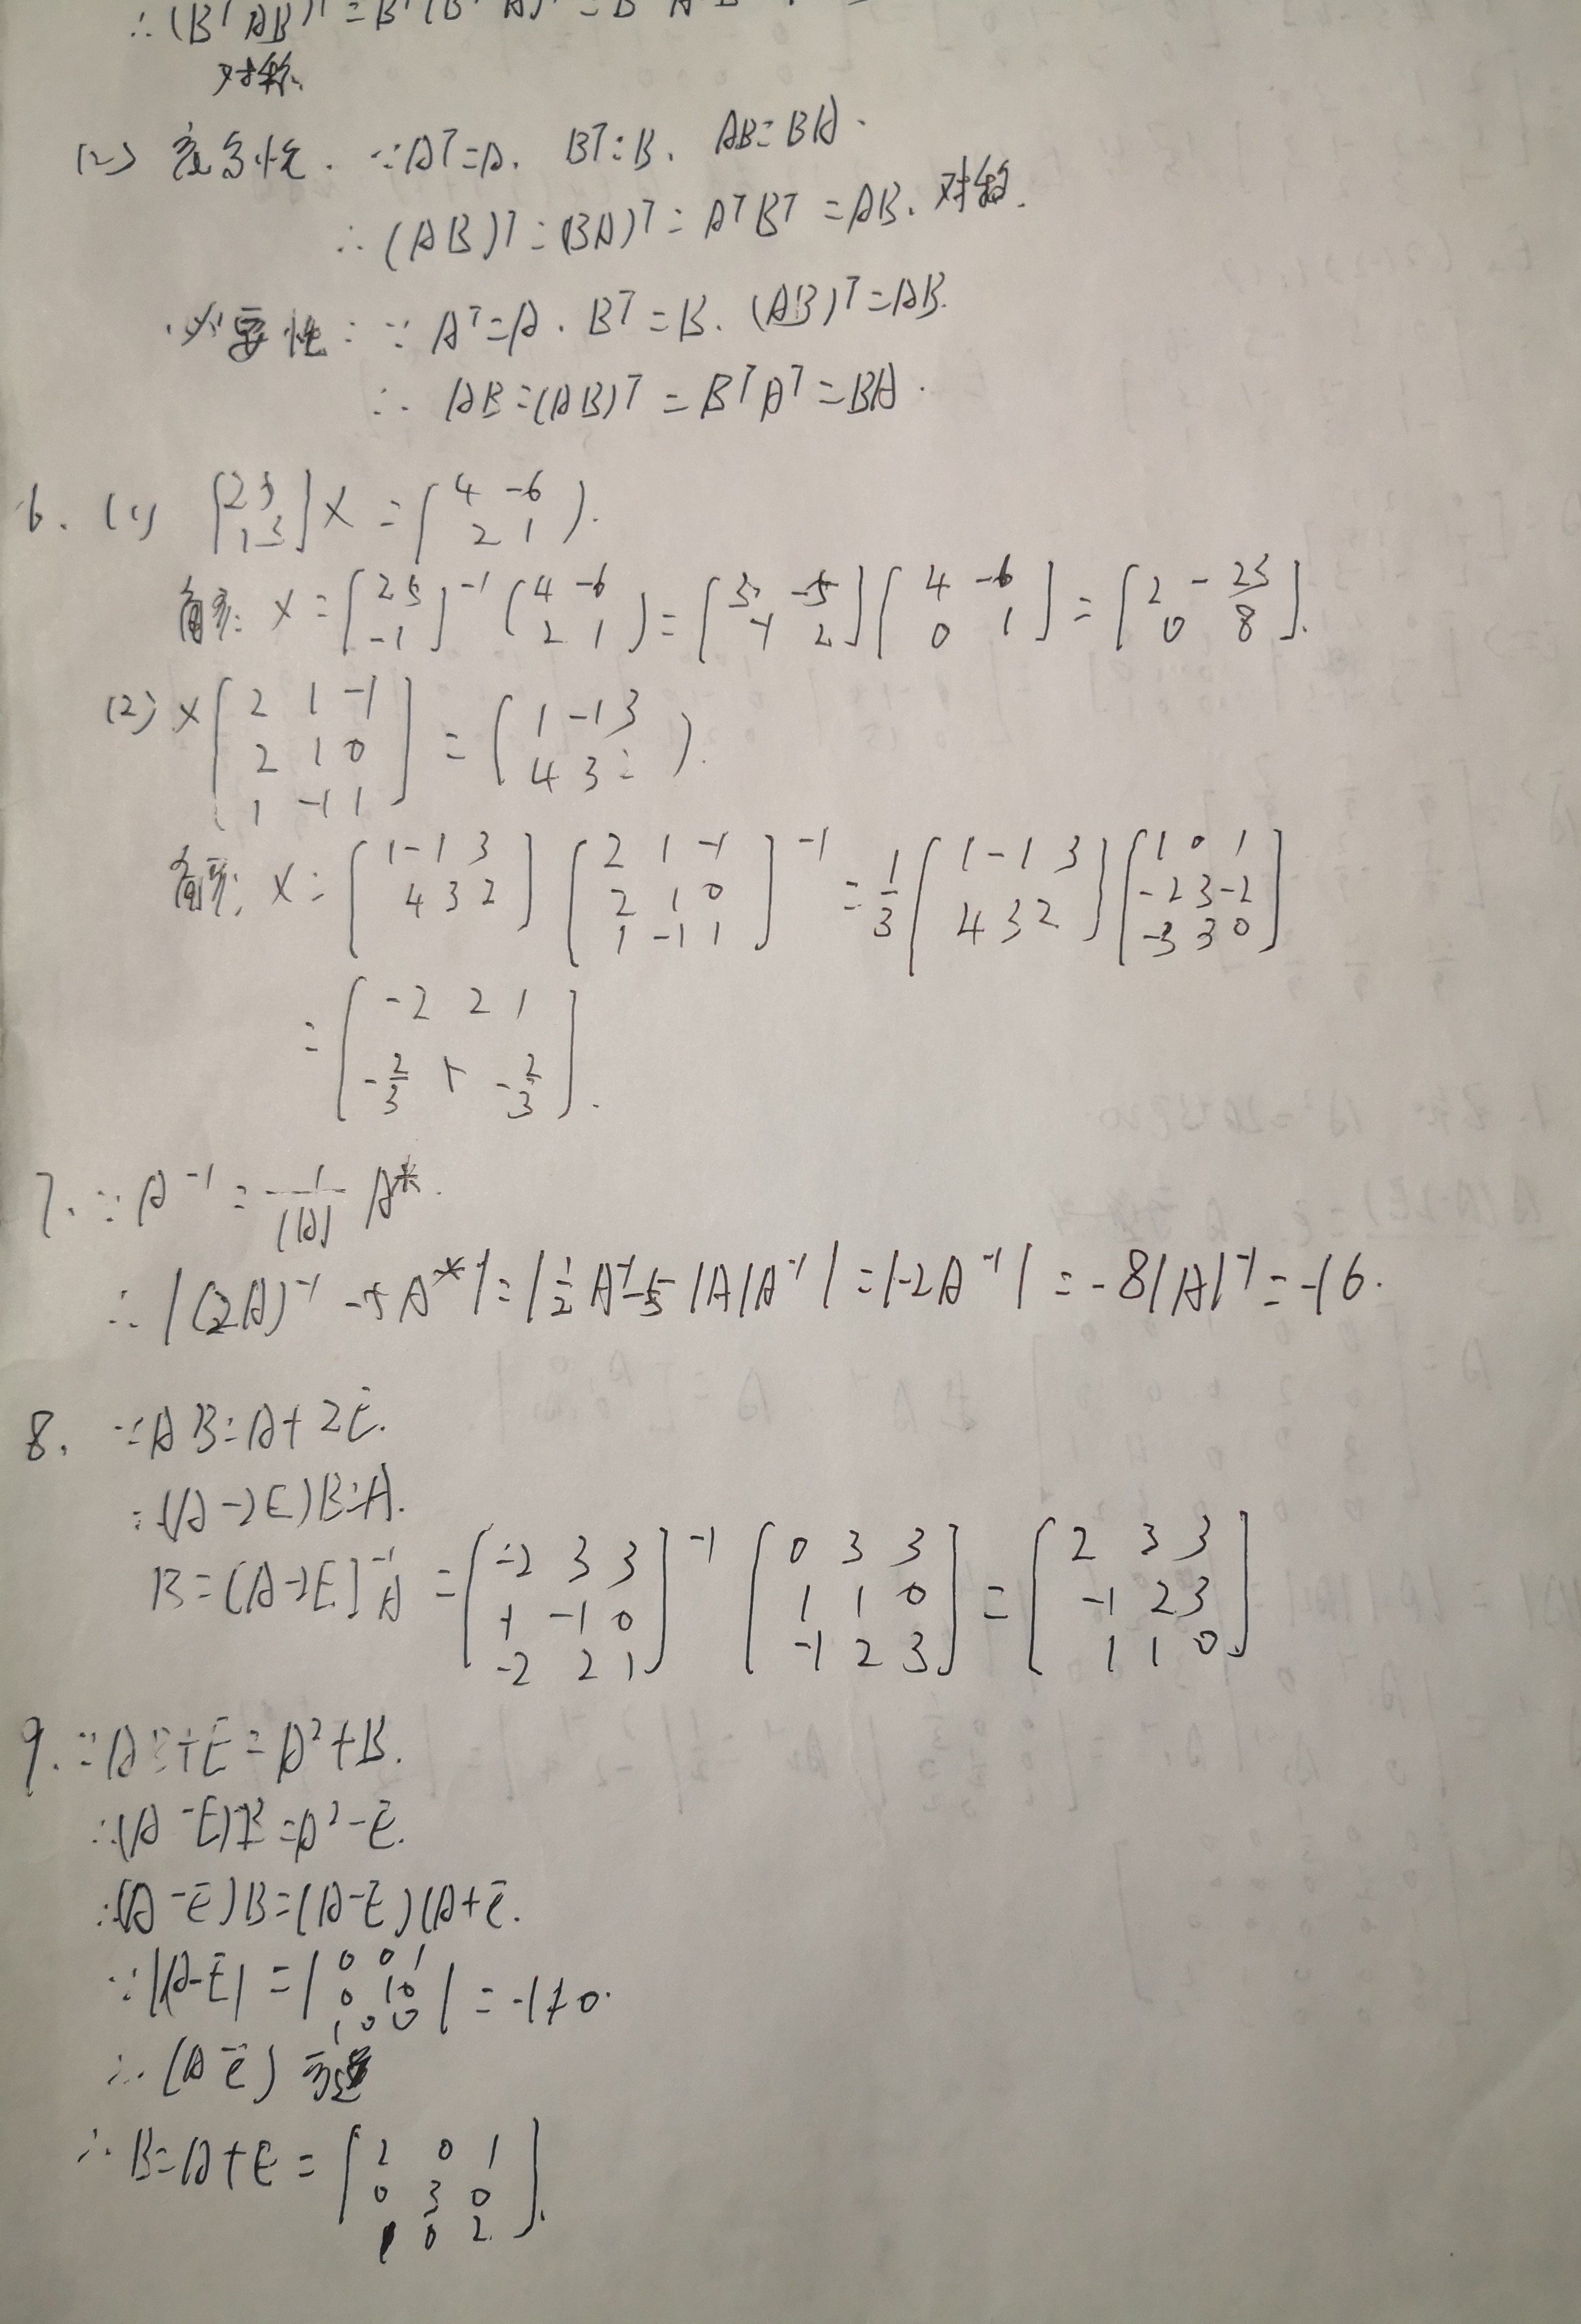 ∴(BᵀAB)ᵀ=Bᵀ(BᵀA)ᵀ=
对称.
(2) 充分性. ∵Aᵀ=A. Bᵀ=B. AB=BA.
∴(AB)ᵀ=(BA)ᵀ=AᵀBᵀ=AB. 对称.
必要性: ∵Aᵀ=A. Bᵀ=B. (AB)ᵀ=AB.
∴AB=(AB)ᵀ=BᵀAᵀ=BA.
6. (1) [2 5; 1 3]X=(4 -6; 2 1).
解: X=[2 5; -1]⁻¹(4 -6; 2 1)=[3 -5; -1 2][4 -6; 0 1]=[2 -23; 0 8].
(2) X[2 1 -1; 2 1 0; 1 -1 1]=(1 -1 3; 4 3 2).
解: X=[1 -1 3; 4 3 2][2 1 -1; 2 1 0; 1 -1 1]⁻¹=1/3[1 -1 3; 4 3 2][1 0 1; -2 3 -2; -3 3 0]
=[-2 2 1; -2/3 + -2/3].
7. ∵A⁻¹=1/|A| A*.
∴|(2A)⁻¹-5A*|=|1/2A⁻¹-5|A|A⁻¹|=|-2A⁻¹|=-8|A|⁻¹=-16.
8. ∵AB=A+2E.
∴(A-2E)B=A.
B=(A-2E]⁻¹A=[-2 3 3; + -1 0; -2 2 1]⁻¹[0 3 3; 1 1 0; -1 2 3]=[2 3 3; -1 2 3; 1 1 0]
9. ∵AB+E=A²+B.
∴(A-E)B=A²-E.
∴(A-E)B=(A-E)(A+E.
∵|A-E|=|0 0 1; 0 1 0; 1 0 0|=-1≠0.
∴(A-E)可逆
∴B=A+E=[2 0 1; 0 3 0; 1 0 2].